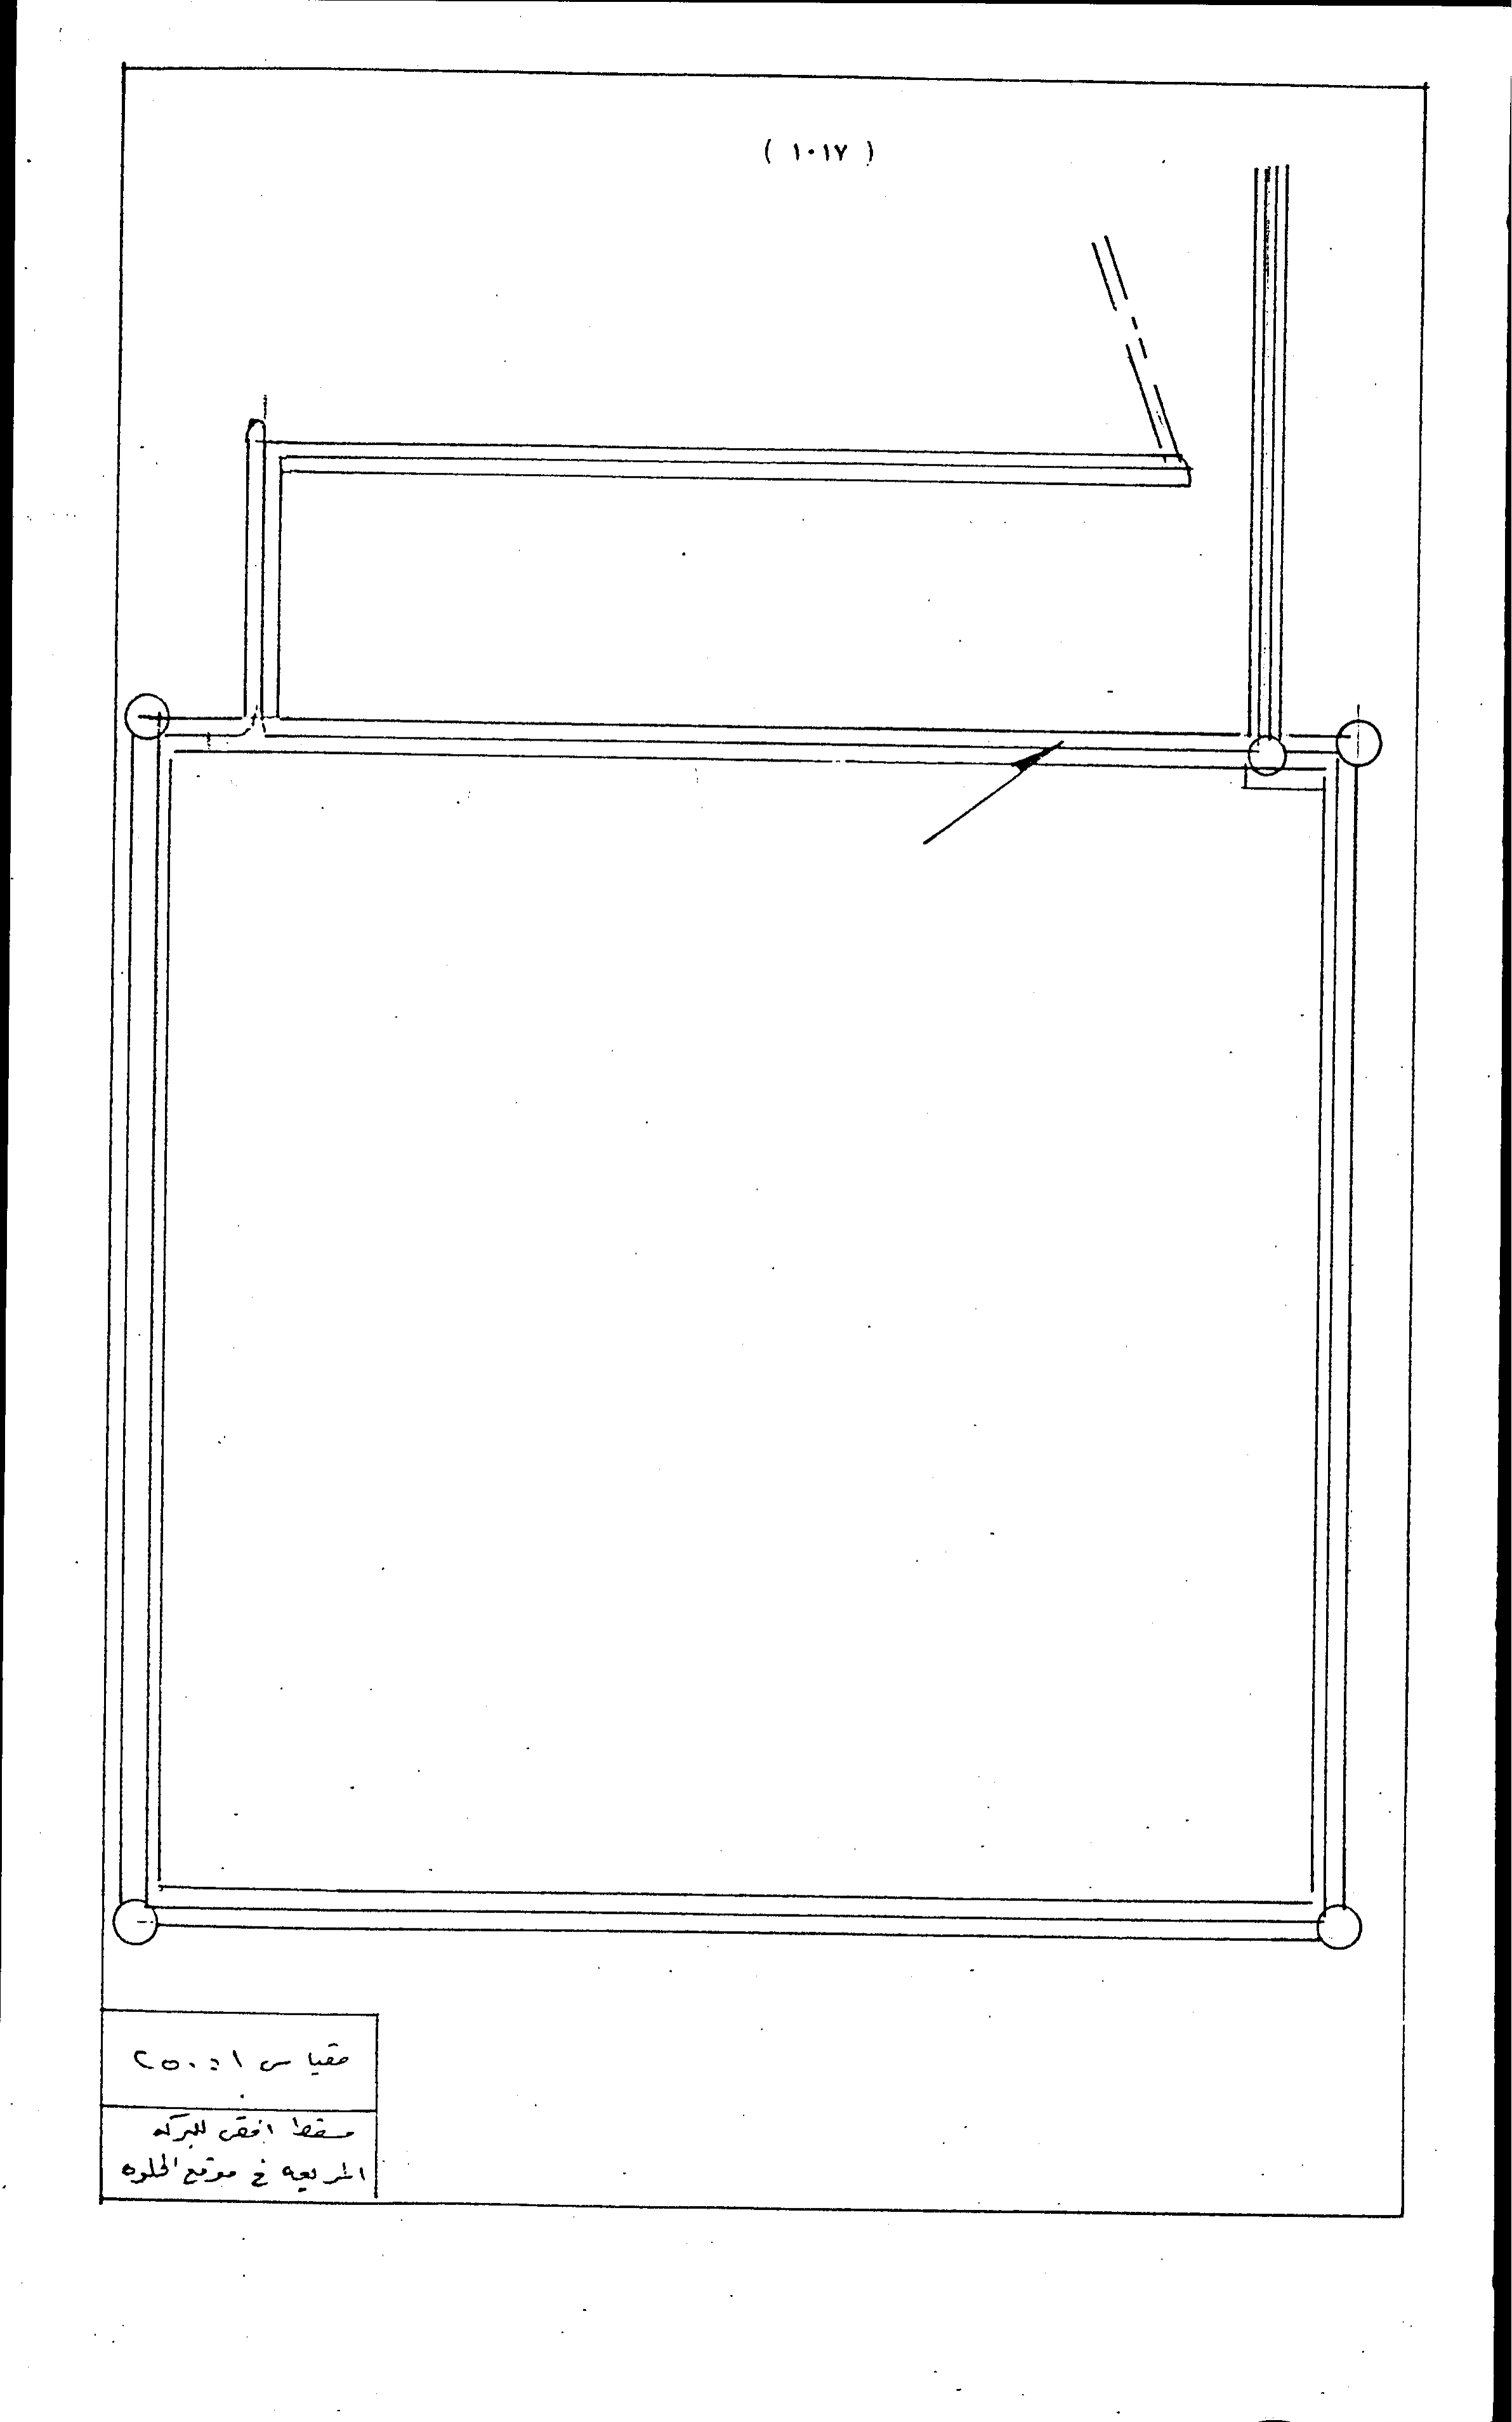 ( ١٠١٧ )
مقياس ١ : ٢٥٠
مسقط افقى للبركه
المربعه في موقع الخلوه